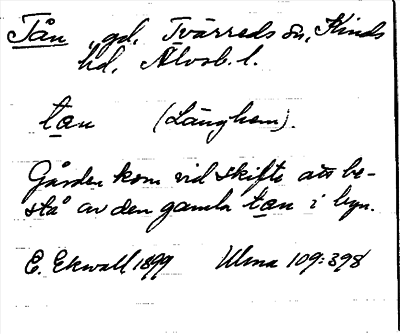 Tån, gd, Tvärreds sn, Kinds
hd, Älvsb. l.
tan (Länghem).
Gården kom vid skifte att be-
stå av den gamla tan i byn.
E. Ekwall 1899 Ulma 109:398